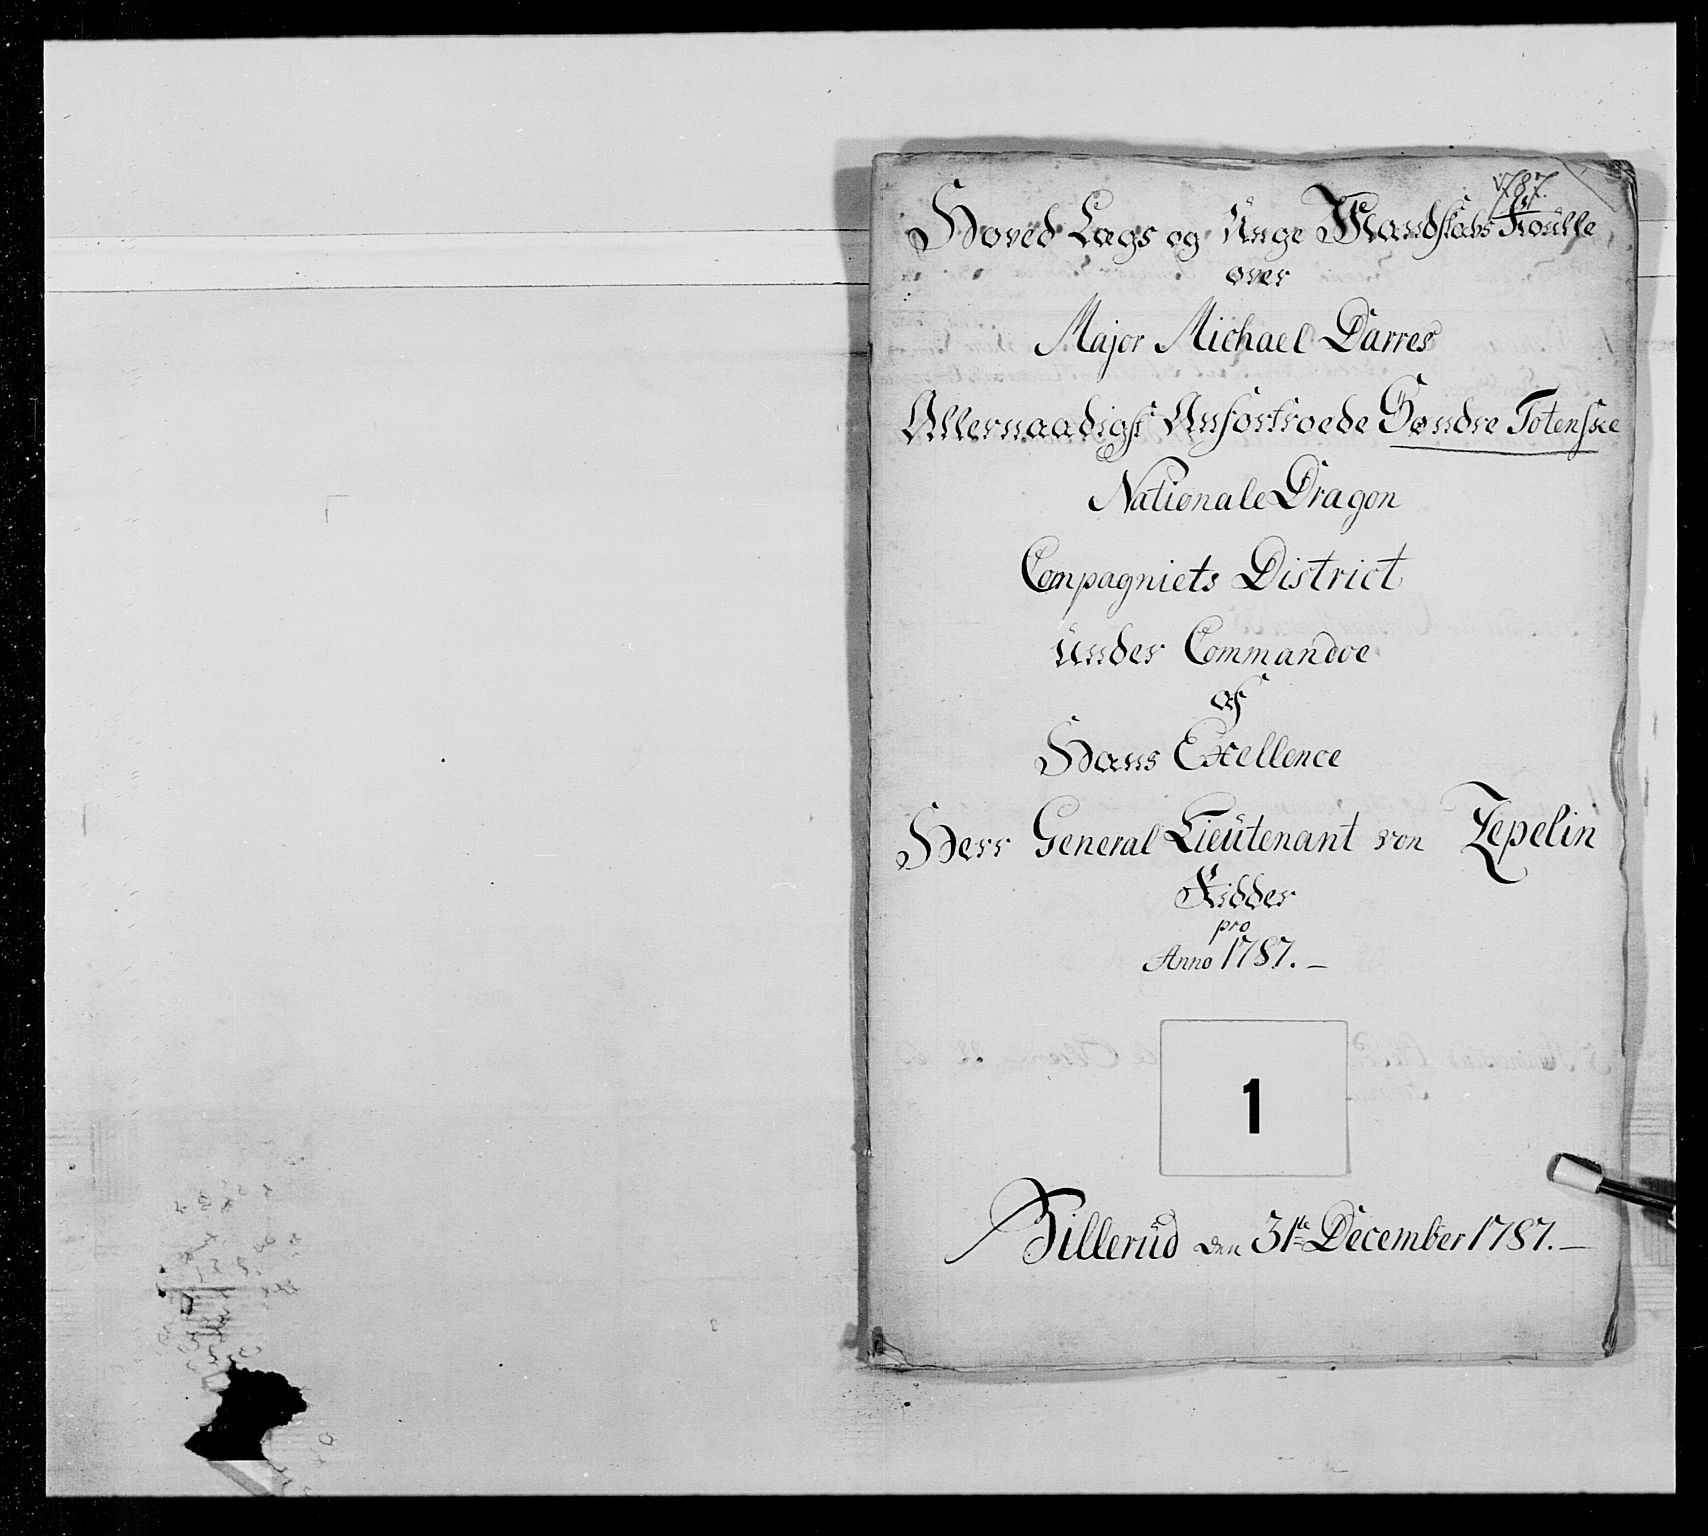 1787.
Hoved Lægs og Unge Mandskabs Roülle
over
Major Michael Darres
Allernaadigst Anfortroede Søndre Totenske
Nationale Dragon
Compagniets District
ünder Commandoe
af
Hans Exellence
Herr General Lieütenant von Zepelin
Ridder
pro
Anno 1787. –
1
Billerüd den 31te December 1787. –